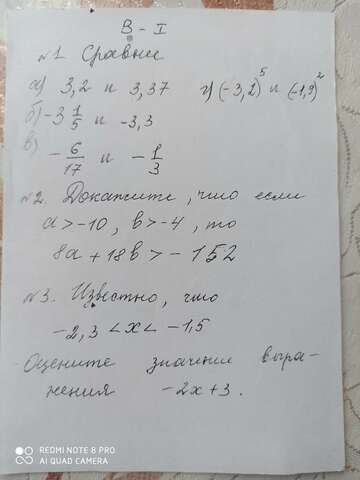 В - I
№1. Сравни
а) 3,2 и 3,37 г) (-3,2)⁵ и (-1,9)²
б) -3 1/5 и -3,3
в) -6/17 и -1/3
№2. Докажите, что если
a > -10, b > -4, то
8a + 18b > -152
№3. Известно, что
-2,3 < x < -1,5
Оцените значение выра-
жения -2x + 3.
REDMI NOTE 8 PRO
AI QUAD CAMERA